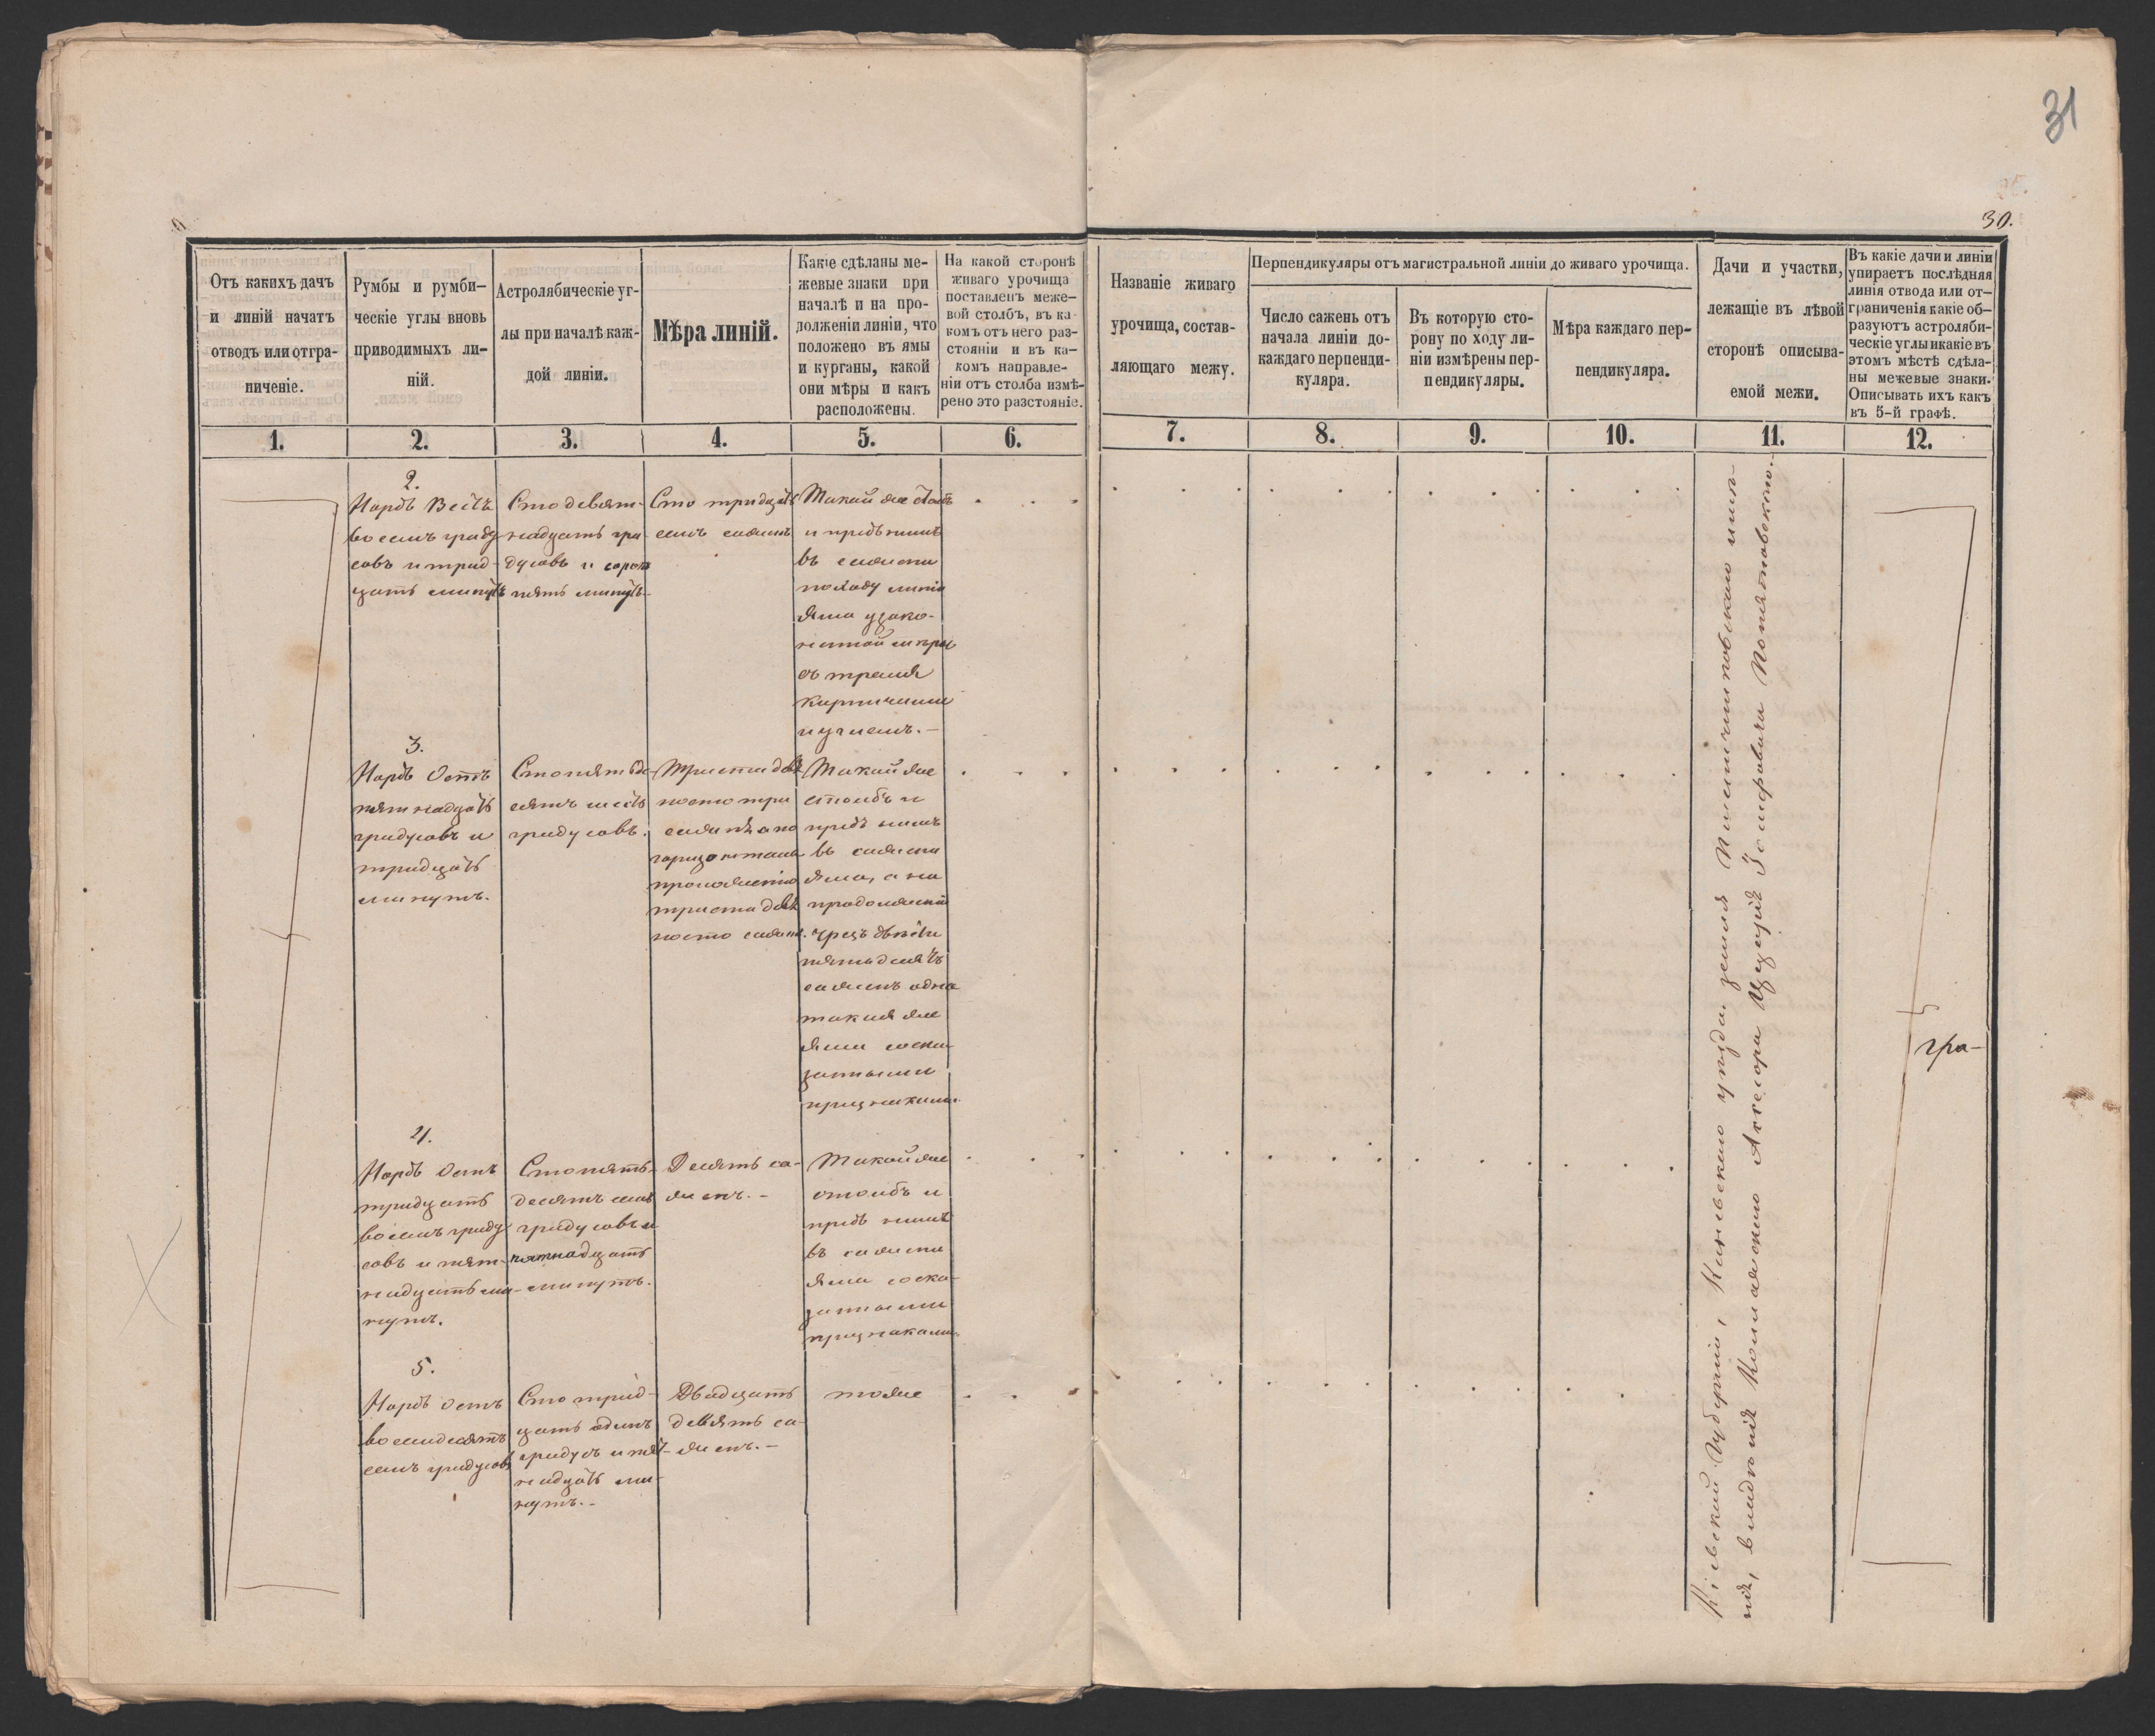 31
30.
Отъ какихъ дачъ
и линій начатъ
отводъ или отгра-
ниченіе.
Румбы и румби-
ческіе углы вновь
приводимыхъ ли-
ній.
Астролябическіе уг-
лы при началѣ каж-
дой линіи.
Мѣра линій.
Какіе сдѣланы ме-
жевые знаки при
началѣ и на про-
долженіи линіи, что
положено въ ямы
и курганы, какой
они мѣры и какъ
расположены.
На какой сторонѣ
живаго урочища
поставленъ меже-
вой столбъ, въ ка-
комъ отъ него раз-
стояніи и въ ка-
комъ направле-
ніи отъ столба измѣ-
рено это разстояніе.
Названіе живаго
урочища, состав-
ляющаго межу.
Перпендикуляры отъ магистральной линіи до живаго урочища.
Число сажень отъ
начала линіи до-
каждаго перпенди-
куляра.
Въ которую сто-
рону по ходу ли-
ніи измѣрены пер-
пендикуляры.
Мѣра каждаго пер-
пендикуляра.
Дачи и участки,
лежащіе въ лѣвой
сторонѣ описыва-
емой межи.
Въ какіе дачи и линіи
упираетъ послѣдняя
линія отвода или от-
граниченія какіе об-
разуютъ астроляби-
ческіе углы и какіе въ
этомъ мѣстѣ сдѣла-
ны межевые знаки.
Описывать ихъ какъ
въ 5-й графѣ.
1. 2. 3. 4. 5. 6. 7. 8. 9. 10. 11. 12.
2.
Нордъ Вестъ
восемь граду
совъ и трид-
цать минутъ
Сто девят-
надцать гра
дусовъ и сорокъ
пять минутъ.
Сто тридцать
семь сажень
Такой же столбъ
и предъ нимъ
въ сажени
по ходу линіи
яма
съ тремя
кирпичами
и углемъ.
3.
Нордъ Остъ
пятнадцать
градусовъ и
тридцать
минутъ.
Сто пятьде
сятъ шесть
градусовъ.
Триста девя
носто три
сажени а по
горизонтальн
проложенію
триста девя
носто сажень.
Такой же
столбъ и
предъ нимъ
въ сажени
яма, а на
продолженіи
чрезъ двѣсти
пятьдесятъ
сажень одна
такая же
яма со ска
занными
признаками.
4.
Нордъ Остъ
тридцать
восемь граду
совъ и пят-
надцать ми-
нутъ.
Сто пять-
десятъ семь
градусовъ и
пятнадцать
минутъ.
Десять са-
жень.
Такой же
столбъ и
предъ нимъ
въ сажени
яма со ска-
занными
признаками.
5.
Нордъ Остъ
восемдесятъ
семь градусовъ
Сто трид-
цать одинъ
градусъ и пят-
надцать ми-
нутъ.
Двадцать
девять са-
жень.
тоже
Кіевской Губерніи, Каневскаго уѣзда, земля
нія, владѣнія Коллежскаго Ассесора Понятовскаго.
гра-